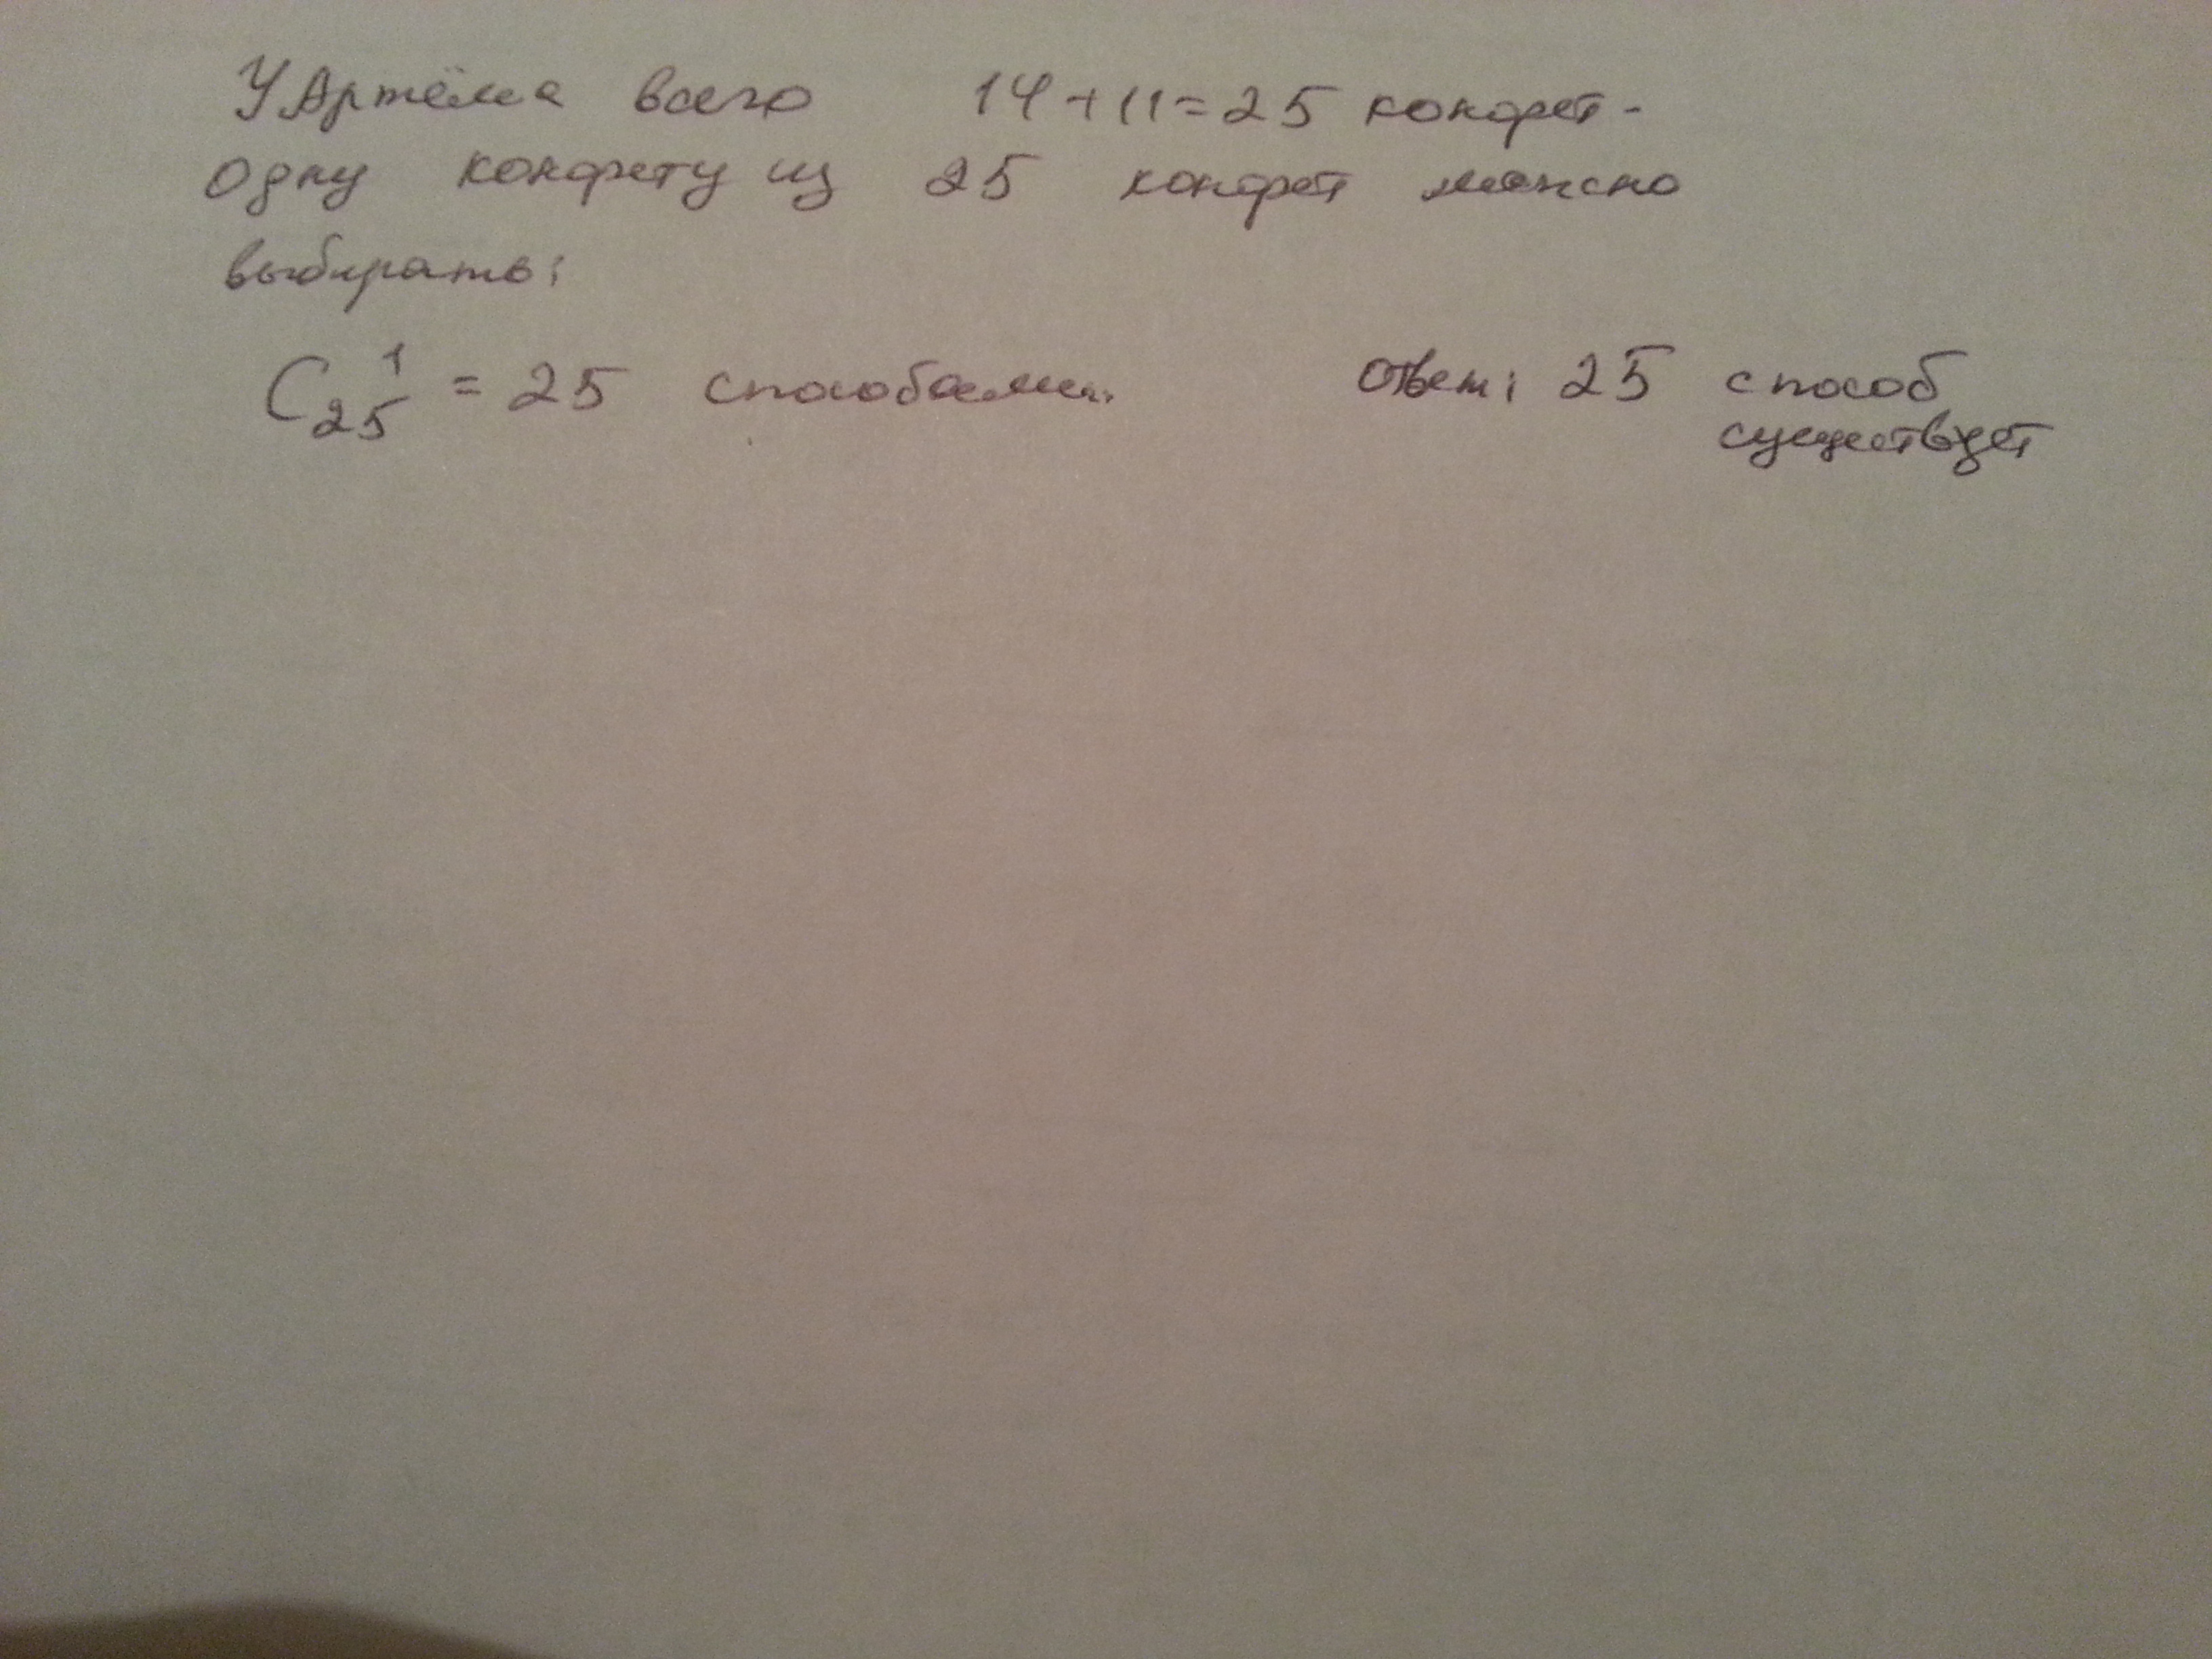 У Артёма всего 14+11=25 конфет-
Одну конфету из 25 конфет можно
выбирать:
C₂₅¹ = 25 способами.
Ответ: 25 способ
существует